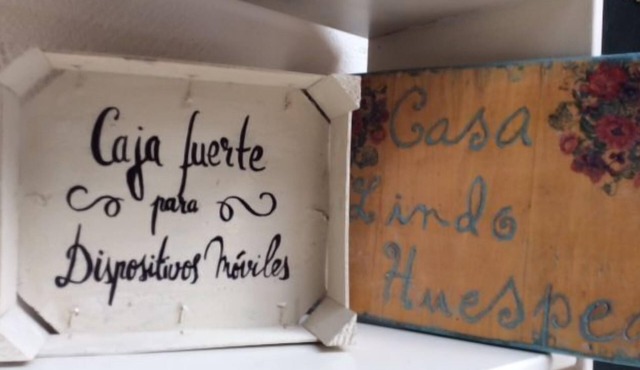 Caja fuerte
para
Dispositivos Móviles
Casa
Lindo